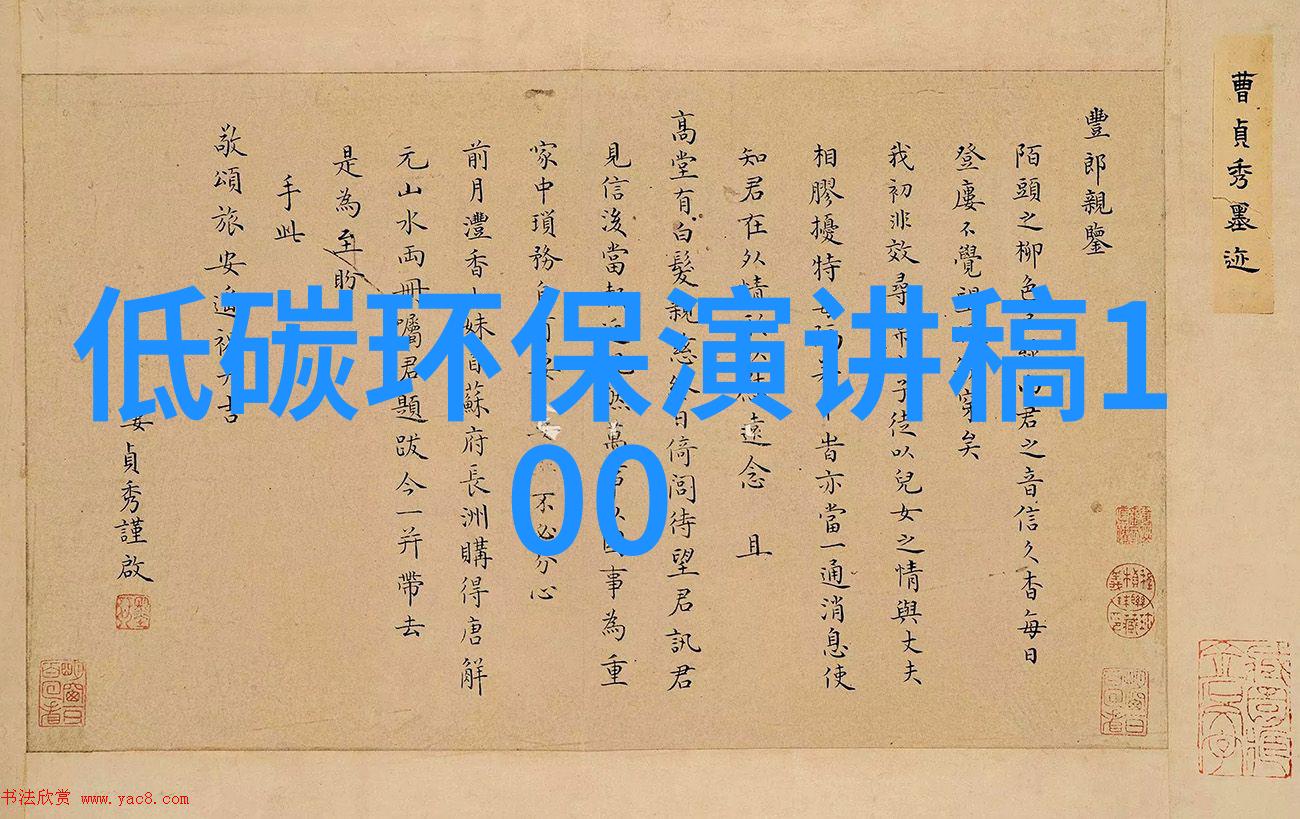 低碳环保演讲稿1
00
曹貞秀墨迹
豐郎親鑒
陌頭之柳色君之音信久杳每日
登廔不覺望穿矣
我初非效尋子徒以兒女之情與丈夫
相膠擾特昔亦當一通消息使
知君在外情遠念 且
高堂有白髮親慈日倚閭待望君訊君
見信後當萬事為重
家中瑣務自不必分心
前月灃香妹自蘇府長洲購得唐解
元山水兩冊囑君題跋今一并帶去
是為至盼
手此
敬頌旅安遙吉
妾貞秀謹啟
书法欣赏 www.yac8.com